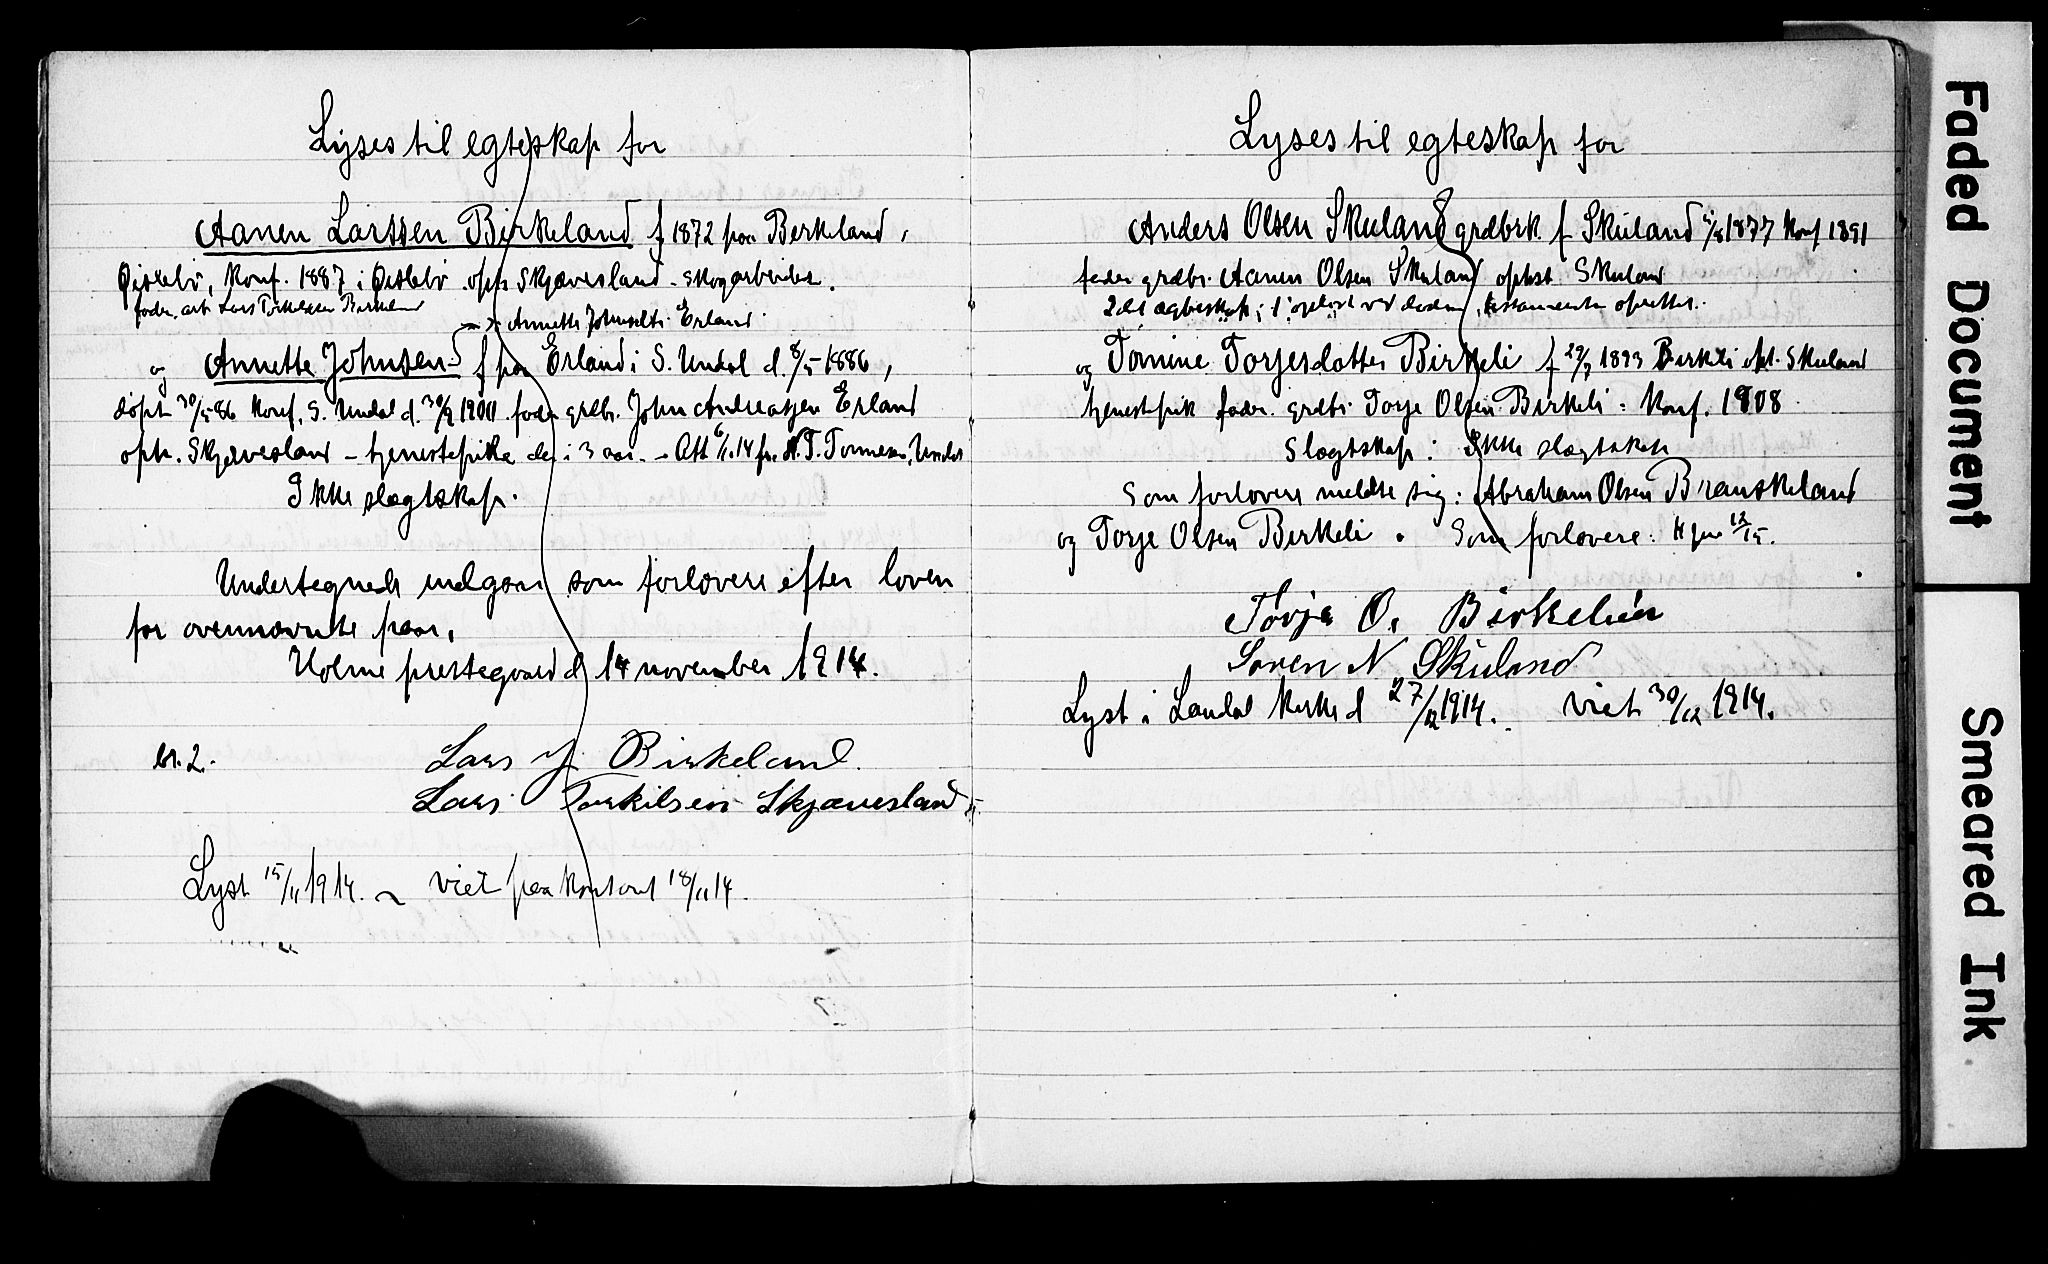 Lyses til egteskap for
Aanen Larssen Birkeland f 1872 paa Birkeland,
Øislebø, konf. 1887 i Øislebø opt. Skjævesland - skogarbeider.
fader, arb. Lars Torkelsen Birkeland
Annette Johnsdtr. Erland
og Annette Johnsen f paa Erland i S. Undal d. 8/5 1886,
døpt 30/5 86 konf. S. Undal d. 1900 fader grdbr. John Andreassen Erland
oph. Skjævesland - tjenestepike der i 3 aar. - Att 6/11 14 fra N. T. Tønnesen, Undal
Ikke slægtskap.
Undertegnede indgaar som forlovere efter loven
for ovennævnte paar.
Holme prestegaard d 14 november 1914.
br. 2.
Lars J. Birkeland.
Lars Torkilsen Skjævesland
Lyst 15/11 1914. ~ viet paa kontoret 18/11 14.
Lyses til egteskap for
Anders Olsen Skuland grdbrk. f Skuland 1877 konf 1891
fader grdbr. Aanen Olsen Skuland ophst Skuland
2det ægteskap; 1 opløst ved døden, testamente oprettet.
og Tomine Torjesdatter Birkeli f 29/3 1893 Birkeli oht. Skuland
tjenestpik fader. grdbr. Torje Olsen Birkeli. konf. 1908.
Slægtskap: Ikke slægtskab
Som forlovere meldte sig: Abraham Olsen Brandskeland
og Torje Olsen Birkeli. Som forlovere:
Torje O. Birkelien
Søren N Skuland
Lyst i Laudal kirke d 27/12 1914. viet 30/12 1914.
Faded Document
Smeared Ink